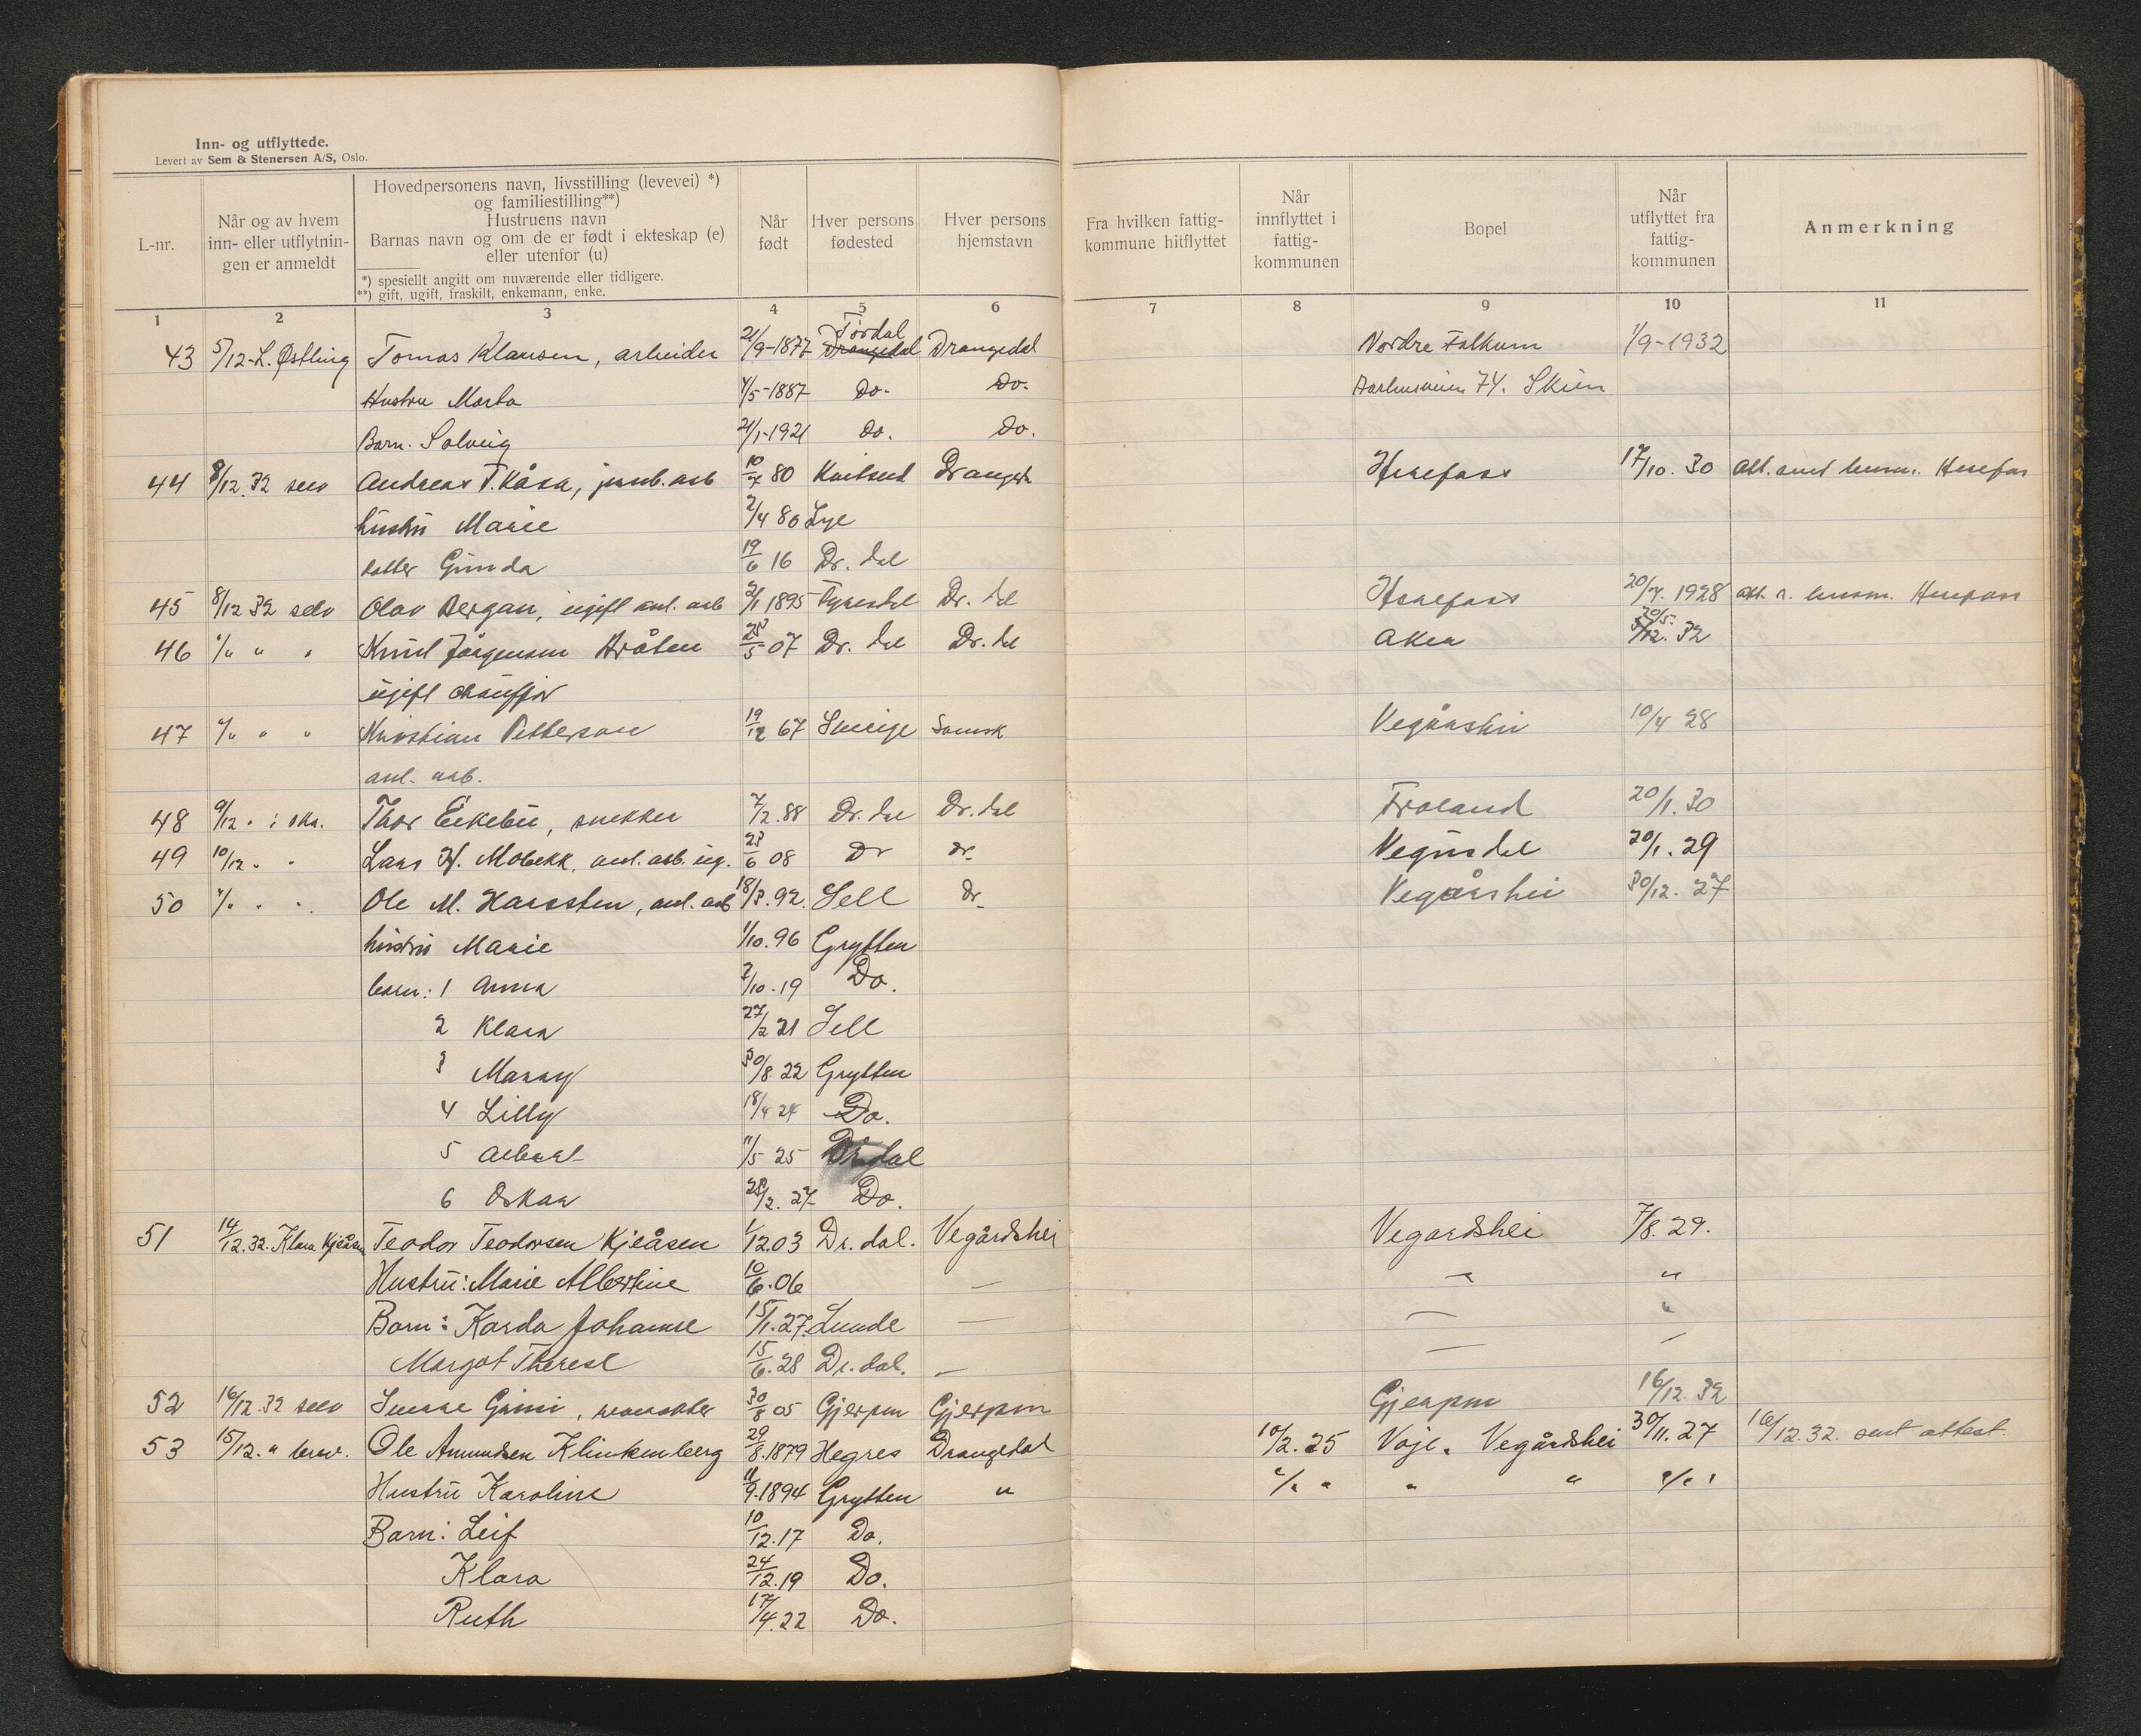 Inn- og utflyttede.
Levert av Sem & Stenersen A/S, Oslo.
L-nr.
Når og av hvem inn- eller utflytnin- gen er anmeldt
Hovedpersonens navn, livsstilling (levevei) *)
og familiestilling**)
Hustruens navn
Barnas navn og om de er født i ekteskap (e)
eller utenfor (u)
*) spesiellt angitt om nuværende eller tidligere.
**) gift, ugift, fraskilt, enkemann, enke.
Når født
Hver persons fødested
Hver persons hjemstavn
Fra hvilken fattig- kommune hitflyttet
Når innflyttet i fattig- kommunen
Bopel
Når utflyttet fra fattig- kommunen
Anmerkning
1 2 3 4 5 6 7 8 9 10 11
Tørdal
43 5/12-L. Østling Tomas Klausen, arbeider 21/9-1877 Drangedal Drangedal Nordre Falkum 1/9-1932
Hustru Marta 4/5-1887 Do. Do. 74. Skien
Barn. Solveig 21/1-1921 Do. Do.
44 8/12.32 selv Andreas T. Kåsa, jernb. arb 10/7 80 Kvitseid Drangeda Herefoss 17/10.30 Att. sent Herefos
hustru Marie 2/4 80 Lye
datter Gunda 19/6 16 Dr. dal
45 8/12 32 selv Olav Bergan, ugift anl. arb 2/1 1895 Fyresdal Dr. dal Herefoss 20/7. 1928 Att. Herefoss
20/5.
46 "/" " " Knut Jørgensen Bråten 28/5 07 Dr. dal Dr. dal Aker 5/12. 32
ugift chauffør
47 "/" " " Kristian Petterson 19/12 67 Sverige Svensk Vegårshei 10/4 28
anl. arb.
48 9/12 " : ska. Thor Eikebu, snekker 7/2.88 Dr. dal Dr. dal Froland 20/1.30
49 10/12. " Lars H. Mobekk, anl. arb. ug. 28/6 08 Dr Dr. Vegusdal 20/1.29
50 "/" " " Ole M. Harssten, anl. arb 18/3.92. Sell Dr. Vegårshei 30/12. 27
hustru Marie 1/10.96 Grytten
barn: 1 Anna 7/10.19 Do.
2 Klara 27/2 21 Sell
3 Marry 30/8. 22 Grytten
4 Lilly 18/4 24 Do.
5 Albert 11/5 25 Dr. dal
6 Oskar 28/2. 27 Do.
51 14/12.32. Klara Kjeåsen Teodor Teodorsen Kjeåsen 1/12.03 Dr. dal. Vegårdshei Vegardshei 7/8. 29.
Hustru: Marie Albertine 10/6.06 — " "
Barn: Karda Johanne 15/1.27. Lunde — — "
Margot Therese 15/6.28 Dr. dal. — — —
52 16/12.32 selv 30/8 05 Gjerpen Gjerpen Gjerpen 16/12.32
53 15/12. " brev. Ole Amundsen Klinkenberg 29/8.1879 Hegres Drangedal 10/2.25 Voje. Vegårdshei 30/11.27 16/12.32. sent attest.
Hustru Karoline 11/9.1894 Grytten " "/" " " " "/" "
Barn: Leif 10/12.17 Do.
Klara 24/12.19 Do.
Ruth 17/4.22 Do.